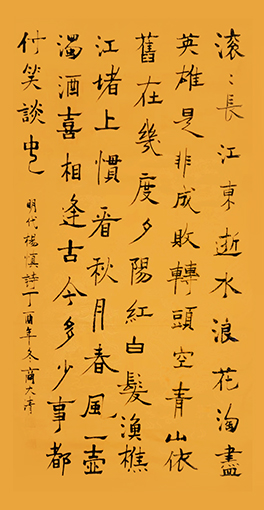 滚〻長江東逝水浪花淘盡
英雄是非成敗轉頭空青山依
舊在幾度夕陽紅白髮漁樵
江堵上慣看秋月春風一壺
濁酒喜相逢古今多少事都
付笑談中
明代楊慎詩丁酉年冬商大